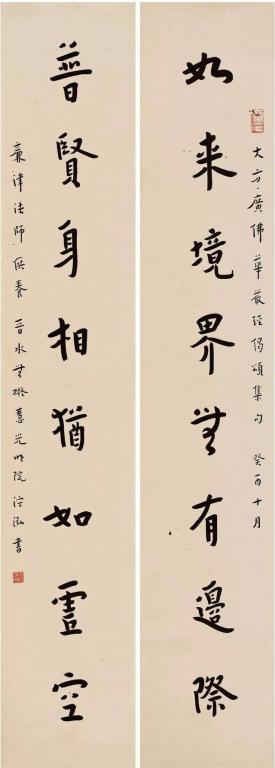 大方廣佛華嚴經偈頌集句 癸酉十月
如来境界無有邊際
普賢身相猶如虛空
律法師供養 晉水無礙慧光明院 書